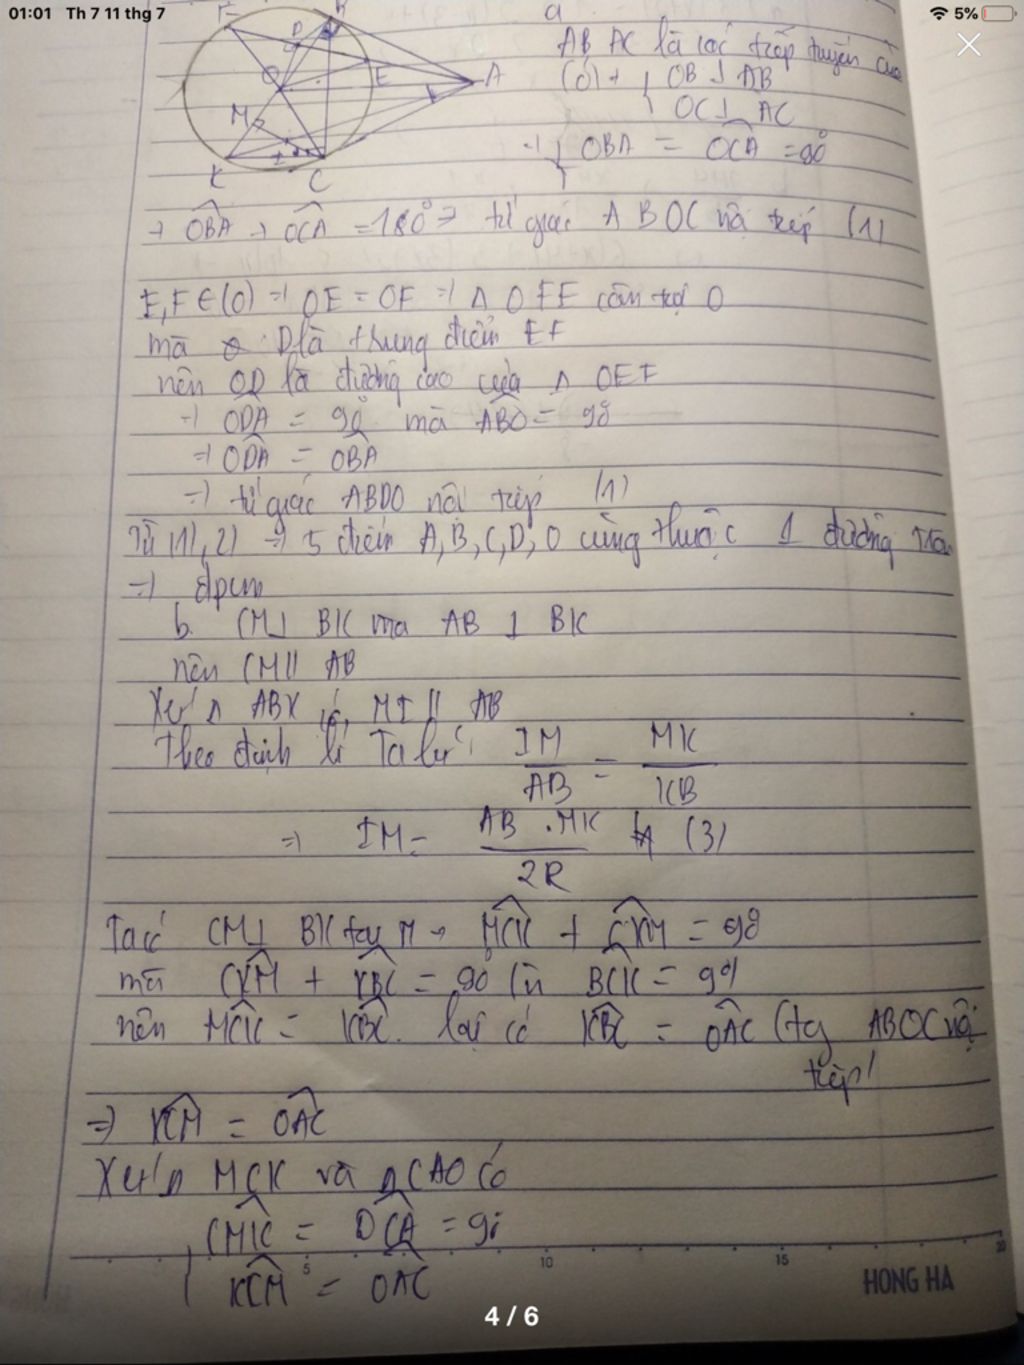 01:01 Th 7 11 thg 7
5%
F
D
B
a
O
E
A
M
I
K
C
AB AC là các tiếp tuyến của
(O) →
OB ⊥ AB
OC ⊥ AC
OBA = OCA = 90°
→ OBA + OCA = 180° → tứ giác ABOC nội tiếp (1)
E, F ∈ (O) → OE = OF → Δ OFE cân tại O
mà D là trung điểm EF
nên OD là đường cao của Δ OEF
→ ODA = 90° mà ABO = 90°
→ ODA = OBA
→ tứ giác ABDO nội tiếp (1)
Từ (1), 2) → 5 điểm A, B, C, D, O cùng thuộc 1 đường tròn
→ đpcm
b. CM ⊥ BK mà AB ⊥ BK
nên CM // AB
Xét Δ ABK có MI // AB
Theo định lí Ta let: IM/AB = MK/KB
→ IM = AB . MK / 2R (3)
Ta có CM ⊥ BK tại M → MCK + CKM = 90°
mà CKM + KBC = 90° (vì BCK = 90)
nên MCK = KBC. lại có KBC = OAC (tg ABOC nội
tiếp)
→ KCM = OAC
Xét Δ MCK và Δ CAO có
CMK = OCA = 90°
KCM = OAC
5 10 15 20
HONG HA
4 / 6